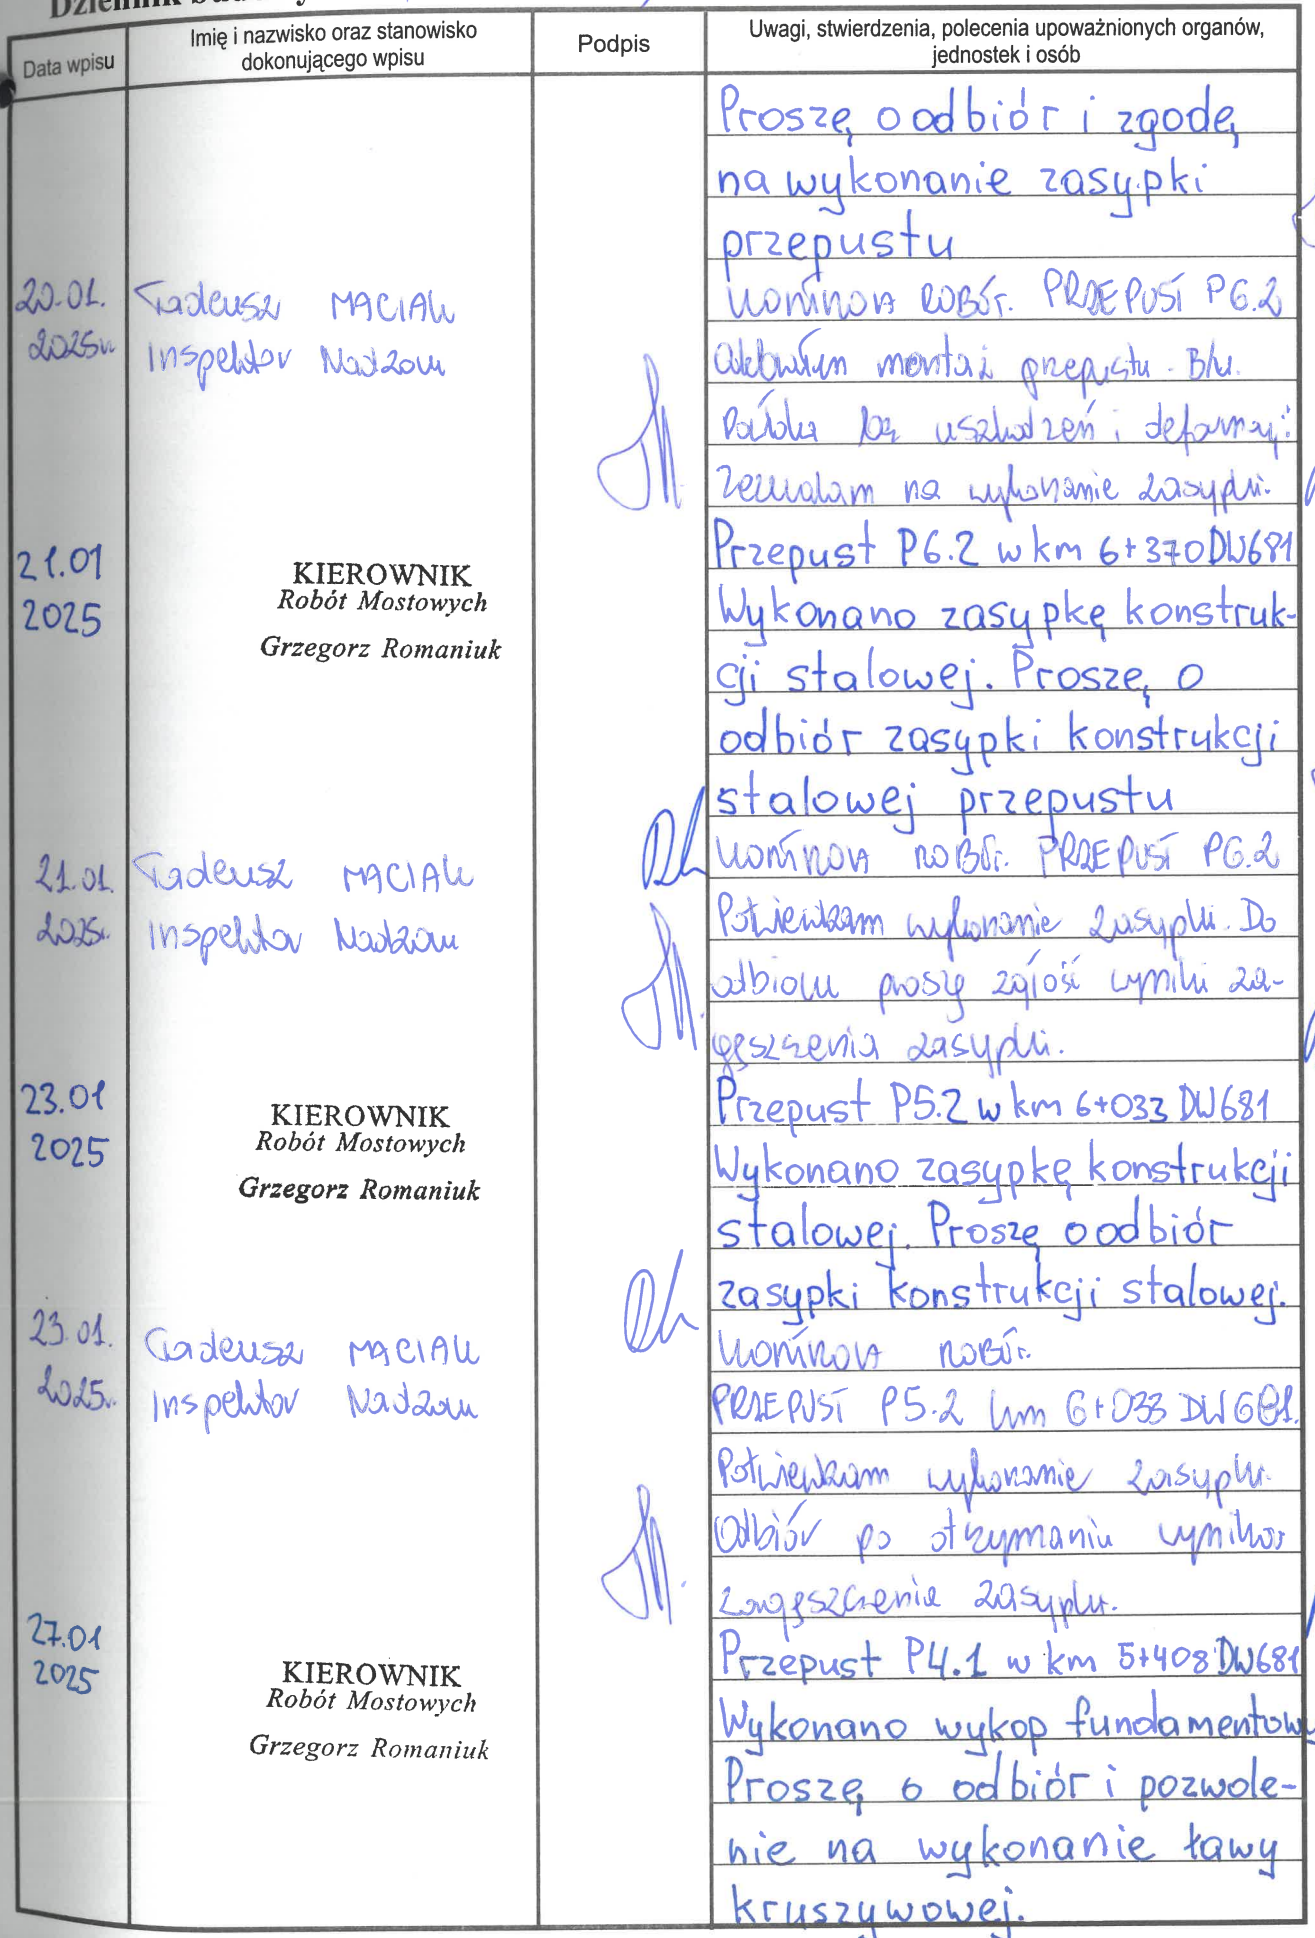 Data wpisu
Imię i nazwisko oraz stanowisko
dokonującego wpisu
Podpis
Uwagi, stwierdzenia, polecenia upoważnionych organów,
jednostek i osób
Proszę o odbiór i zgodę
na wykonanie zasypki
przepustu
20.01.
2025r.
Tadeusz MACIAK
Inspektor Nadzoru
KONTROLA ROBÓT. PRZEPUST P6.2
montaż przepustu. B/u.
Powłoka bez uszkodzeń i deformacji.
Zezwalam na wykonanie zasypki.
21.01
2025
KIEROWNIK
Robót Mostowych
Grzegorz Romaniuk
Przepust P6.2 w km 6+370 DW681
Wykonano zasypkę konstruk-
cji stalowej. Proszę o
odbiór zasypki konstrukcji
stalowej przepustu
21.01.
2025r.
Tadeusz MACIAK
Inspektor Nadzoru
KONTROLA ROBÓT. PRZEPUST P6.2
Potwierdzam wykonanie zasypki. Do
odbioru proszę zgłosić wyniki za-
gęszczenia zasypki.
23.01
2025
KIEROWNIK
Robót Mostowych
Grzegorz Romaniuk
Przepust P5.2 w km 6+033 DW681
Wykonano zasypkę konstrukcji
stalowej. Proszę o odbiór
zasypki konstrukcji stalowej.
23.01.
2025r.
Tadeusz MACIAK
Inspektor Nadzoru
KONTROLA ROBÓT.
PRZEPUST P5.2 km 6+033 DW681.
Potwierdzam wykonanie zasypki.
Odbiór po otrzymaniu wyników
zagęszczenia zasypki.
27.01
2025
KIEROWNIK
Robót Mostowych
Grzegorz Romaniuk
Przepust P4.1 w km 5+408 DW681
Wykonano wykop fundamentowy
Proszę o odbiór i pozwole-
nie na wykonanie ławy
kruszywowej.